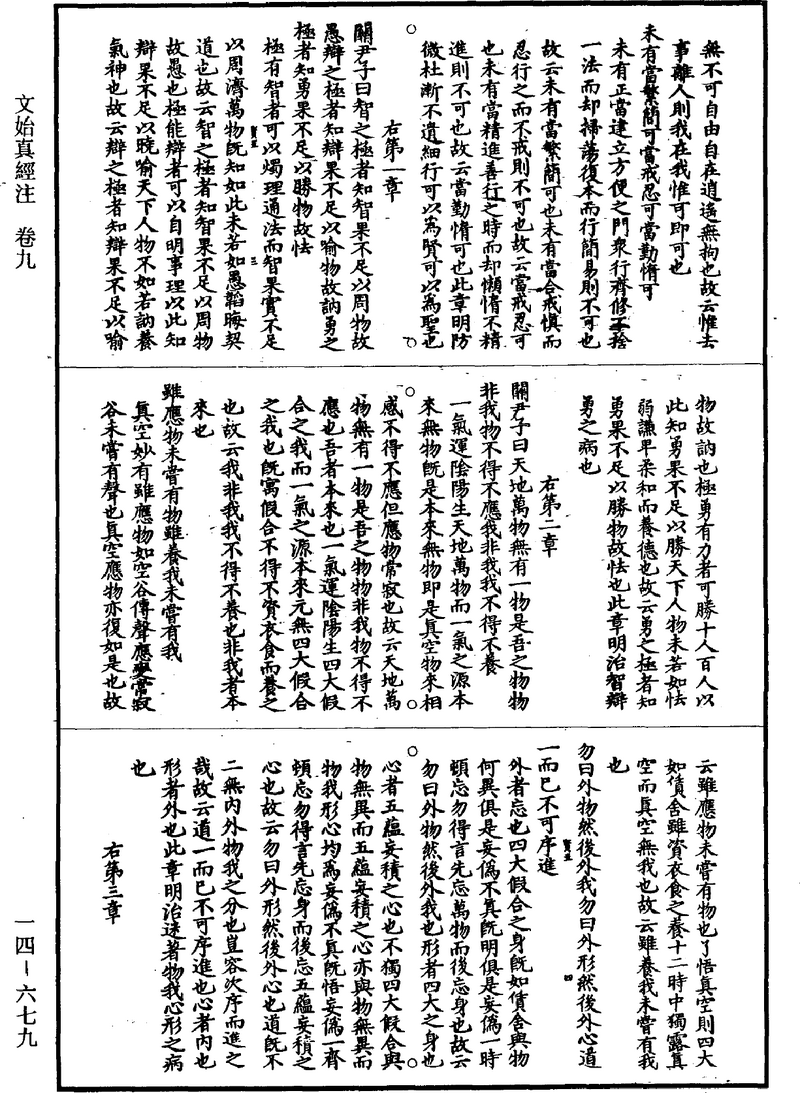 無不可自由自在逍遙無拘也故云惟去
事離人則我在我惟可即可也
未有當繁簡可當戒忍可當勤惰可
未有正當建立方便之門衆行齊修不捨
一法而却掃蕩復本而行簡易則不可也
故云未有當繁簡可也未有當合戒慎而
忍行之而不戒則不可也故云當戒忍可
也未有當精進善行之時而却懶惰不精
進則不可也故云當勤惰可也此章明防
微杜漸不遺細行可以為賢可以為聖也
右第一章
關尹子曰智之極者知智果不足以周物故
愚辯之極者知辯果不足以喻物故訥勇之
極者知勇果不足以勝物故怯
極有智者可以燭理通法而智果實不足
以周濟萬物既知如此未若如愚韜晦契
道也故云智之極者知智果不足以周物
故愚也極能辯者可以自明事理以此知
辯果不足以曉喻天下人物不如若訥養
氣神也故云辯之極者知辯果不足以喻
物故訥也極勇有力者可勝十人百人以
此知勇果不足以勝天下人物未若如怯
弱謙卑柔和而養德也故云勇之極者知
勇果不足以勝物故怯也此章明治智辯
勇之病也
右第二章
關尹子曰天地萬物無有一物是吾之物物
非我物不得不應我非我我不得不養
一氣運陰陽生天地萬物而一氣之源本
來無物既是本來無物即是真空物來相
感不得不應但應物常寂也故云天地萬
物無有一物是吾之物物非我物不得不
應也吾者本來也一氣運陰陽生四大假
合之我而一氣之源本來元無四大假合
之我也既寓假合不得不資衣食而養之
也故云我非我我不得不養也非我者本
來也
雖應物未嘗有物雖養我未嘗有我
真空妙有雖應物如空谷傳聲應變常寂
谷未嘗有聲也真空應物亦復如是也故
云雖應物未嘗有物也了悟真空則四大
如賃舍雖資衣食之養十二時中獨露真
空而真空無我也故云雖養我未嘗有我
也
勿曰外物然後外我勿曰外形然後外心道
一而已不可序進
外者忘也四大假合之身既如賃舍與物
何異俱是妄偽不真既明俱是妄偽一時
頓忘勿得言先忘萬物而後忘身也故云
勿曰外物然後外我也形者四大之身也
心者五蘊妄積之心也不獨四大假合與
物無異而五蘊妄積之心亦與物無異而
物我形心均為妄偽不真既悟妄偽一齊
頓忘勿得言先忘身而後忘五蘊妄積之
心也故云勿曰外形然後外心也道既不
二無內外物我之分也豈容次序而進之
哉故云道一而已不可序進也心者內也
形者外也此章明治迷著物我心形之病
也
右第三章
文始真經注 卷九
一四–六七九